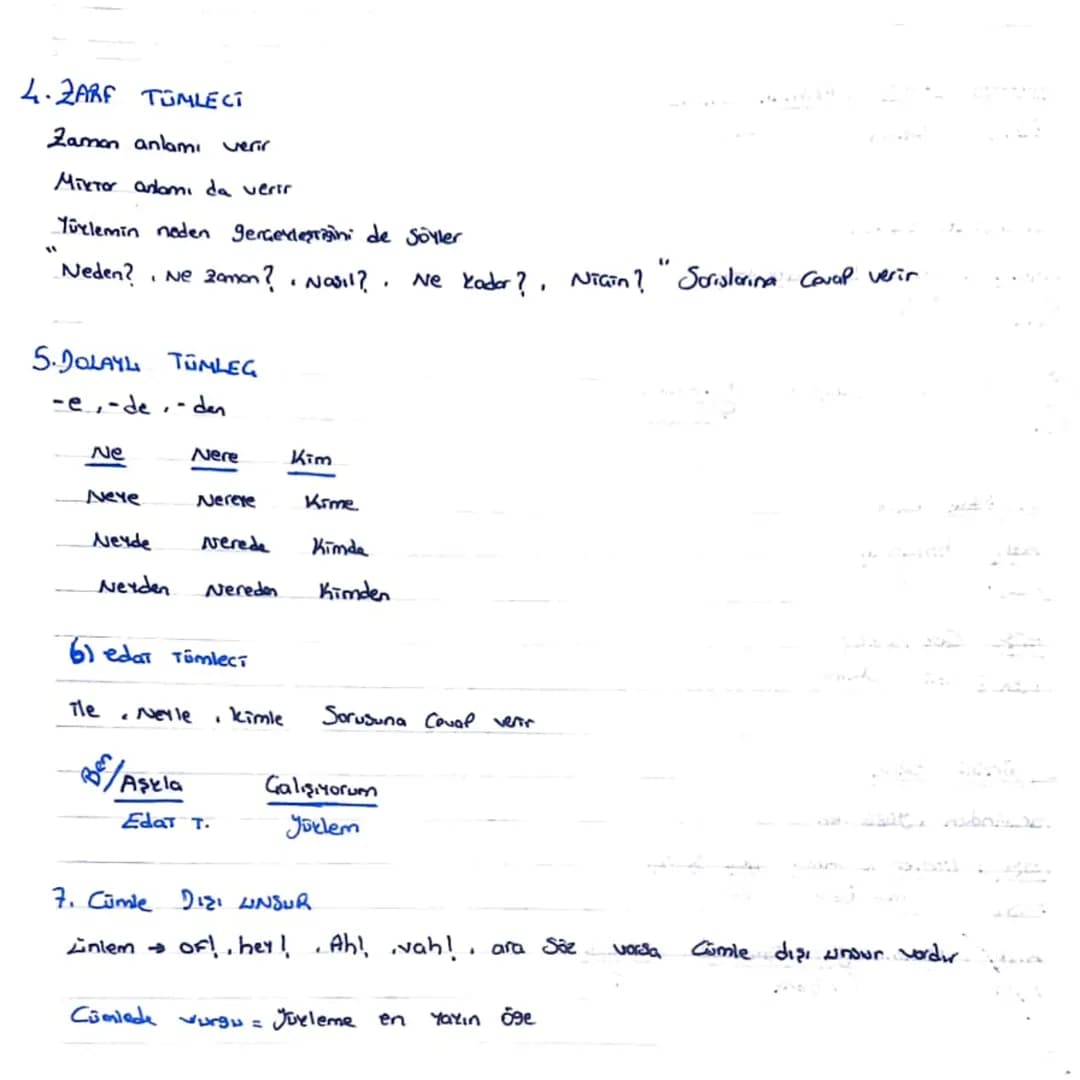 4. ZARF TÜMLECİ
Zaman anlamı verir
Miktar anlamı da verir
Yüklemin neden gerçekleştiğini de söyler
"Neden?, Ne zaman?, Nasıl?, Ne kadar?, Niçin?" Sorularına Cevap verir
5. DOLAYLI TÜMLEÇ
-e, -de, -den
Ne Nere Kim
Neye Nereye Kime
Neyde Nerede Kimde
Neyden Nereden Kimden
6) edat Tümleci
ile, Neyle, kimle Sorusuna Cevap verir
Aşkla Çalışıyorum
Edat T. Yüklem
7. Cümle DIŞI UNSUR
Ünlem → Of!, hey!, Ah!, vah!, ara Söz varsa Cümle dışı unsur vardır
Cümlede vurgu = Yükleme en yakın öge